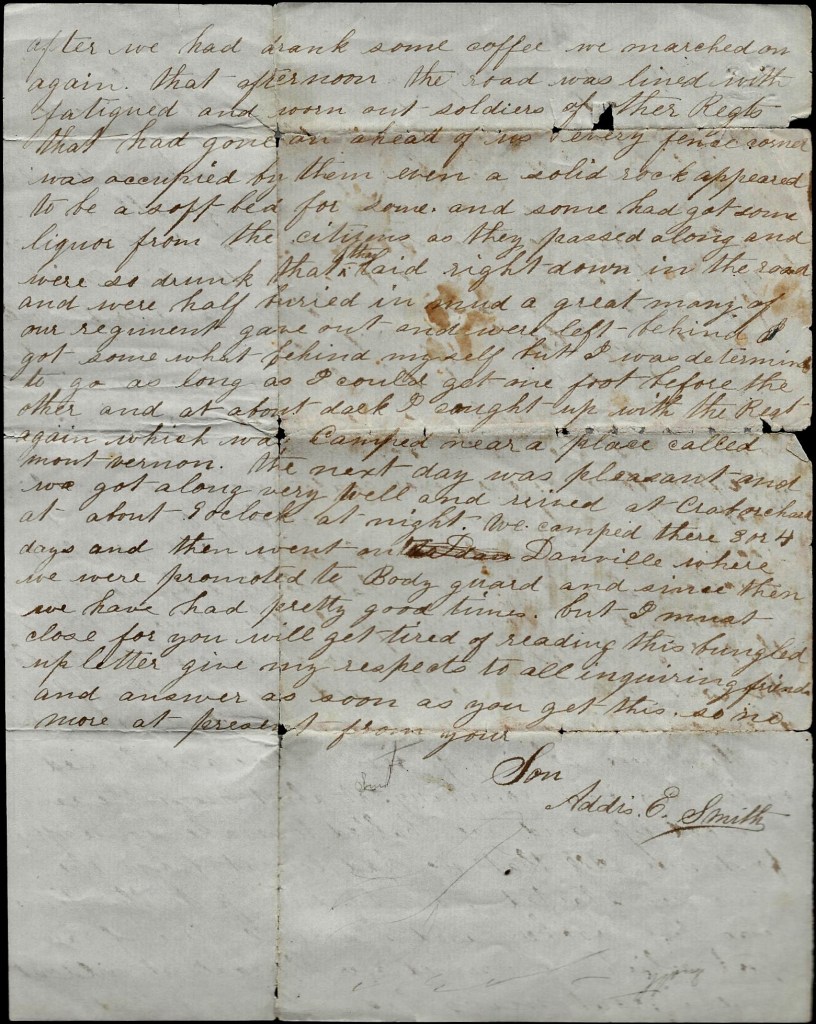 after we had drank some coffee we marched on
again. that afternoon the road was lined with
fatigued and worn out soldiers of other Regts
that had gone on ahead of us every fence corner
was occupied by them even a solid rock appeared
to be a soft bed for some. and some had got some
liquor from the citizens as they passed along and
were so drunk that they laid right down in the road
and were half buried in mud a great many of
our regiment gave out and were left behind I
got some what behind myself but I was determined
to go as long as I could get one foot before the
other and at about dark I caught up with the Regt
again which was Camped near a place called
mont vernon. the next day was pleasant and
we got along very well and rived at Craborchard
at about 9 oclock at night. We camped there 3 or 4
days and then went on Danville where
we were promoted to Body guard and since then
we have had pretty good times. but I must
close for you will get tired of reading this bungled
up letter give my respects to all inquiring friends
and answer as soon as you get this. so no
more at present from your
Son
Addis. E. Smith